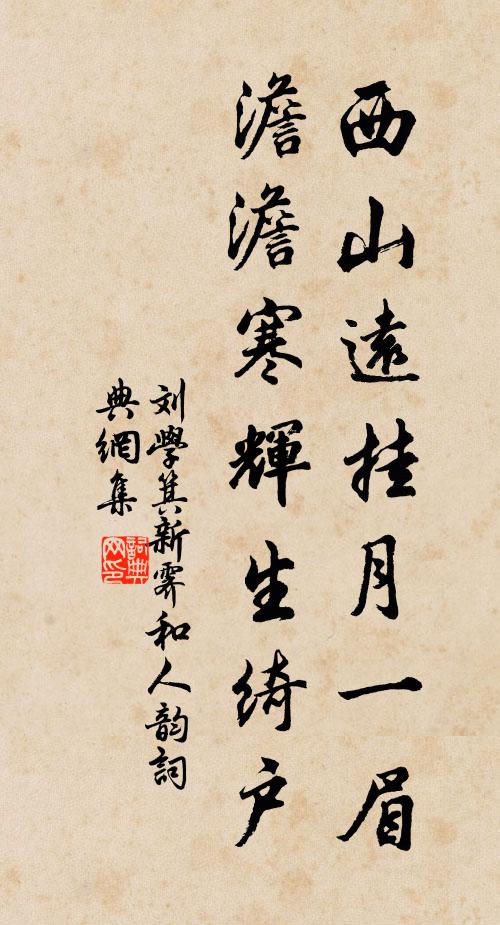 西山遠挂月一眉
澹澹寒輝生綺户
刘學箕新霽和人韵詞
典網集
詞典网印